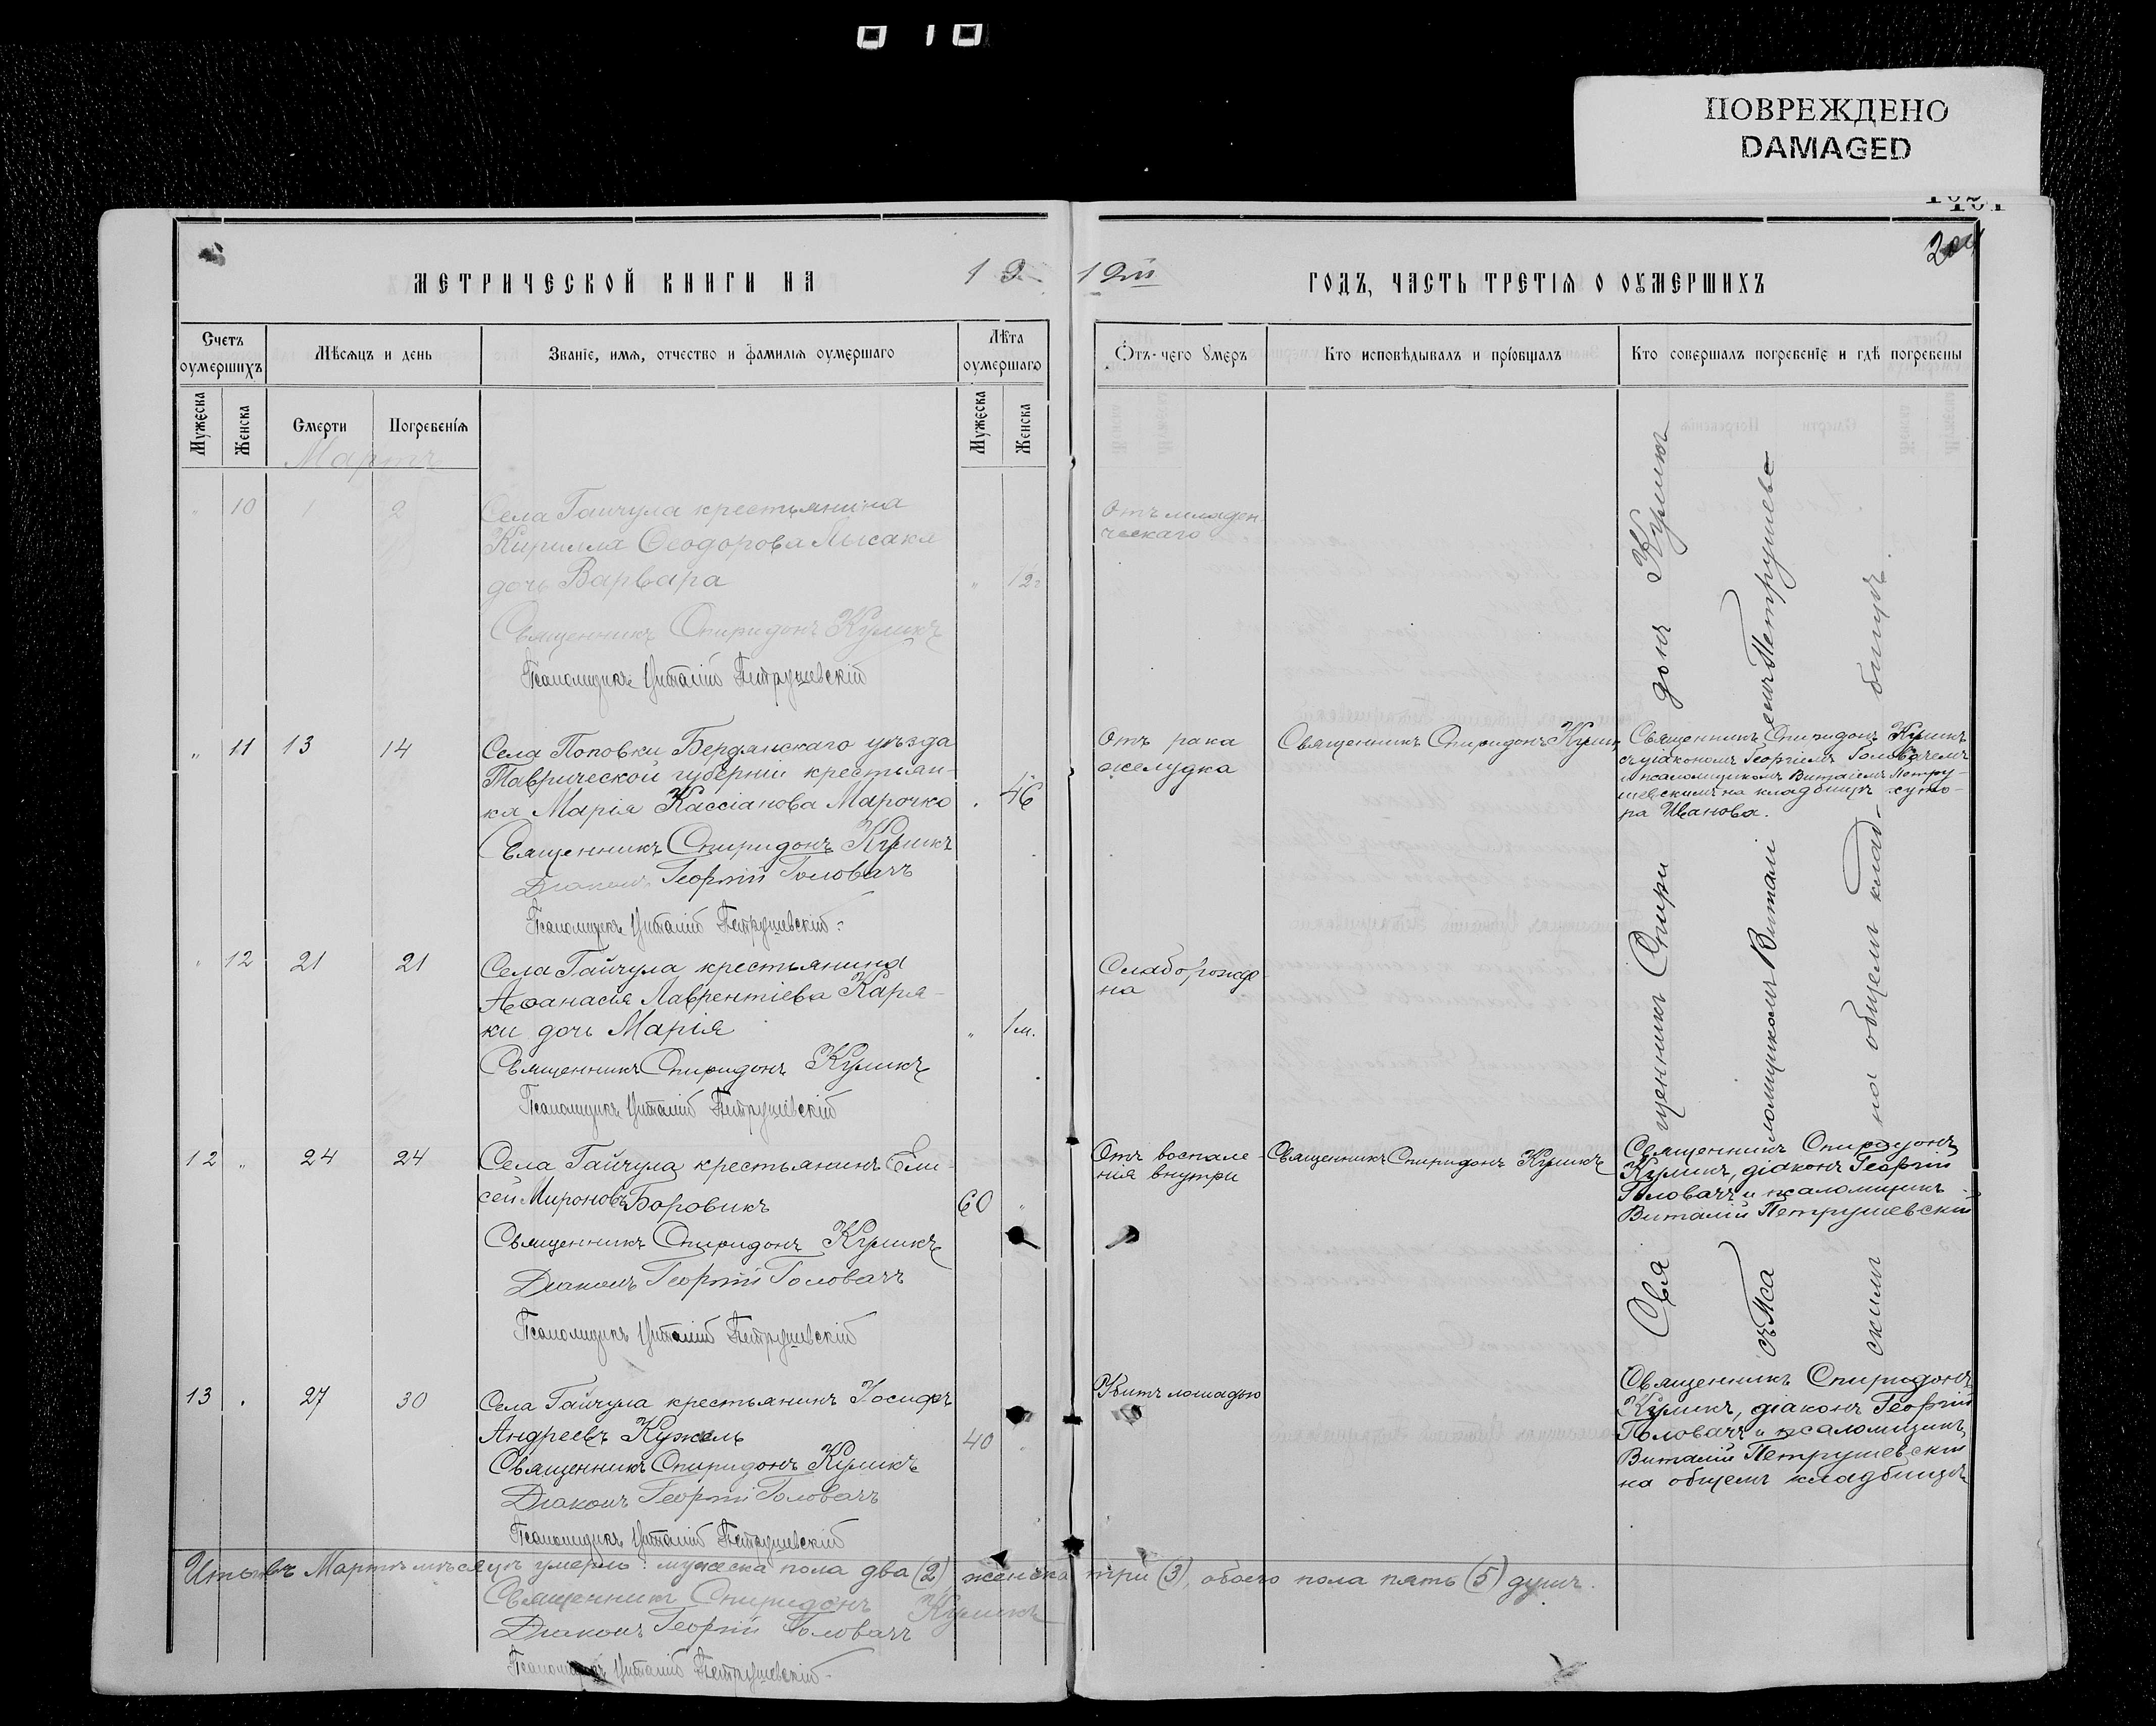 010
ПОВРЕЖДЕНО
DAMAGED
МЕТРИЧЕСКОЙ КНИГИ НА
ГОДЪ, ЧАСТЬ ТРЕТІЯ О ОУМЕРШИХЪ
Счетъ оумершихъ
Мѣсяцъ и день
Званіе, имя, отчество и фамилья оумершаго
Лѣта оумершаго
Отъ-чего умеръ
Кто исповѣдывалъ и пріобщалъ
Кто совершалъ погребеніе и гдѣ погребены
Мужеска
Женска
Смерти
Погребенія
Мужеска
Женска
Мартъ
" 10 1 2
Села Гайчула крестьянина
Кирилла Ѳеодорова Лысака
дочь Варвара
Священникъ Спиридонъ Куликъ
Псаломщикъ Виталій Петрушевскій
Отъ младен-
ческаго
" 11 13 14
Села Поповки Бердянскаго уѣзда
Таврической губерніи крестьян-
ка Марія Кассіанова Марочко
46
Священникъ Спиридонъ Куликъ
Діаконъ Георгій Головачъ
Псаломщикъ Виталій Петрушевскій
Отъ рака
желудка
Священникъ Спиридонъ Кулик
Священникъ Спиридонъ Куликъ
съ діакономъ Георгіемъ Головачемъ
и псаломщикомъ Виталіемъ Петру-
шевскимъ на кладбищѣ хуто-
ра Иванова.
" 12 21 21
Села Гайчула крестьянина
Аѳанасія Лаврентіева Каря-
ки дочь Марія
" 1 м.
Священникъ Спиридонъ Куликъ
Псаломщикъ Виталій Петрушевскій
Слаборожде
на
12 " 24 24
Села Гайчула крестьянинъ Ели-
сей Мироновъ Боровикъ
60 "
Священникъ Спиридонъ Куликъ
Діаконъ Георгій Головачъ
Псаломщикъ Виталій Петрушевскій
Отъ воспале-
нія внутри
Священникъ Спиридонъ Куликъ
Священникъ Спиридонъ
Куликъ, діаконъ Георгій
Головачъ и псаломщикъ
Виталій Петрушевскій
13 27 30
Села Гайчула крестьянинъ Іосифъ
Андреевъ Кужель
40
Священникъ Спиридонъ Куликъ
Діаконъ Георгій Головачъ
Псаломщикъ Виталій Петрушевскій
Убитъ лошадью
Священникъ Спиридонъ
Куликъ, діаконъ Георгій
Головачъ и псаломщикъ
Виталій Петрушевскій
на общемъ кладбищѣ
Священникъ Спиридонъ Куликъ
съ Псаломщикомъ Виталіемъ Петрушев-
скимъ на общемъ кладбищѣ.
Итого въ Мартѣ мѣсяцѣ умерло: мужеска пола два (2), женска три (3), обоего пола пять (5) душъ.
Священникъ Спиридонъ Куликъ
Діаконъ Георгій Головачъ
Псаломщикъ Виталій Петрушевскій